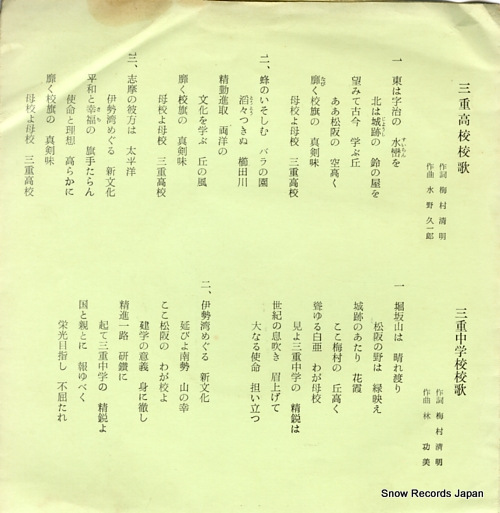 三重高校校歌
作詞 梅村清明
作曲 水野久一郎
一 東は宇治の 水巒を
北は城跡の 鈴の屋を
望みて古今 学ぶ丘
ああ松阪の 空高く
靡く校旗の 真剣味
母校よ母校 三重高校
二、蜂のいそしむ バラの園
滔々つきぬ 櫛田川
精勤進取 両洋の
文化を学ぶ 丘の風
靡く校旗の 真剣味
母校よ母校 三重高校
三、志摩の彼方は 太平洋
伊勢湾めぐる 新文化
平和と幸福の 旗手たらん
使命と理想 高らかに
靡く校旗の 真剣味
母校よ母校 三重高校
三重中学校校歌
作詞 梅村清明
作曲 林功美
一 堀坂山は 晴れ渡り
松阪の野は 緑映え
城跡のあたり 花霞
ここ梅村の 丘高く
聳ゆる白亜 わが母校
見よ三重中学の 精鋭は
世紀の息吹き 眉上げて
大なる使命 担い立つ
二、伊勢湾めぐる 新文化
延びよ南勢 山の幸
ここ松阪の わが校よ
建学の意義 身に徹し
精進一路 研鑚に
起て三重中学の 精鋭よ
国と親とに 報ゆべく
栄光目指し 不屈たれ
Snow Records Japan